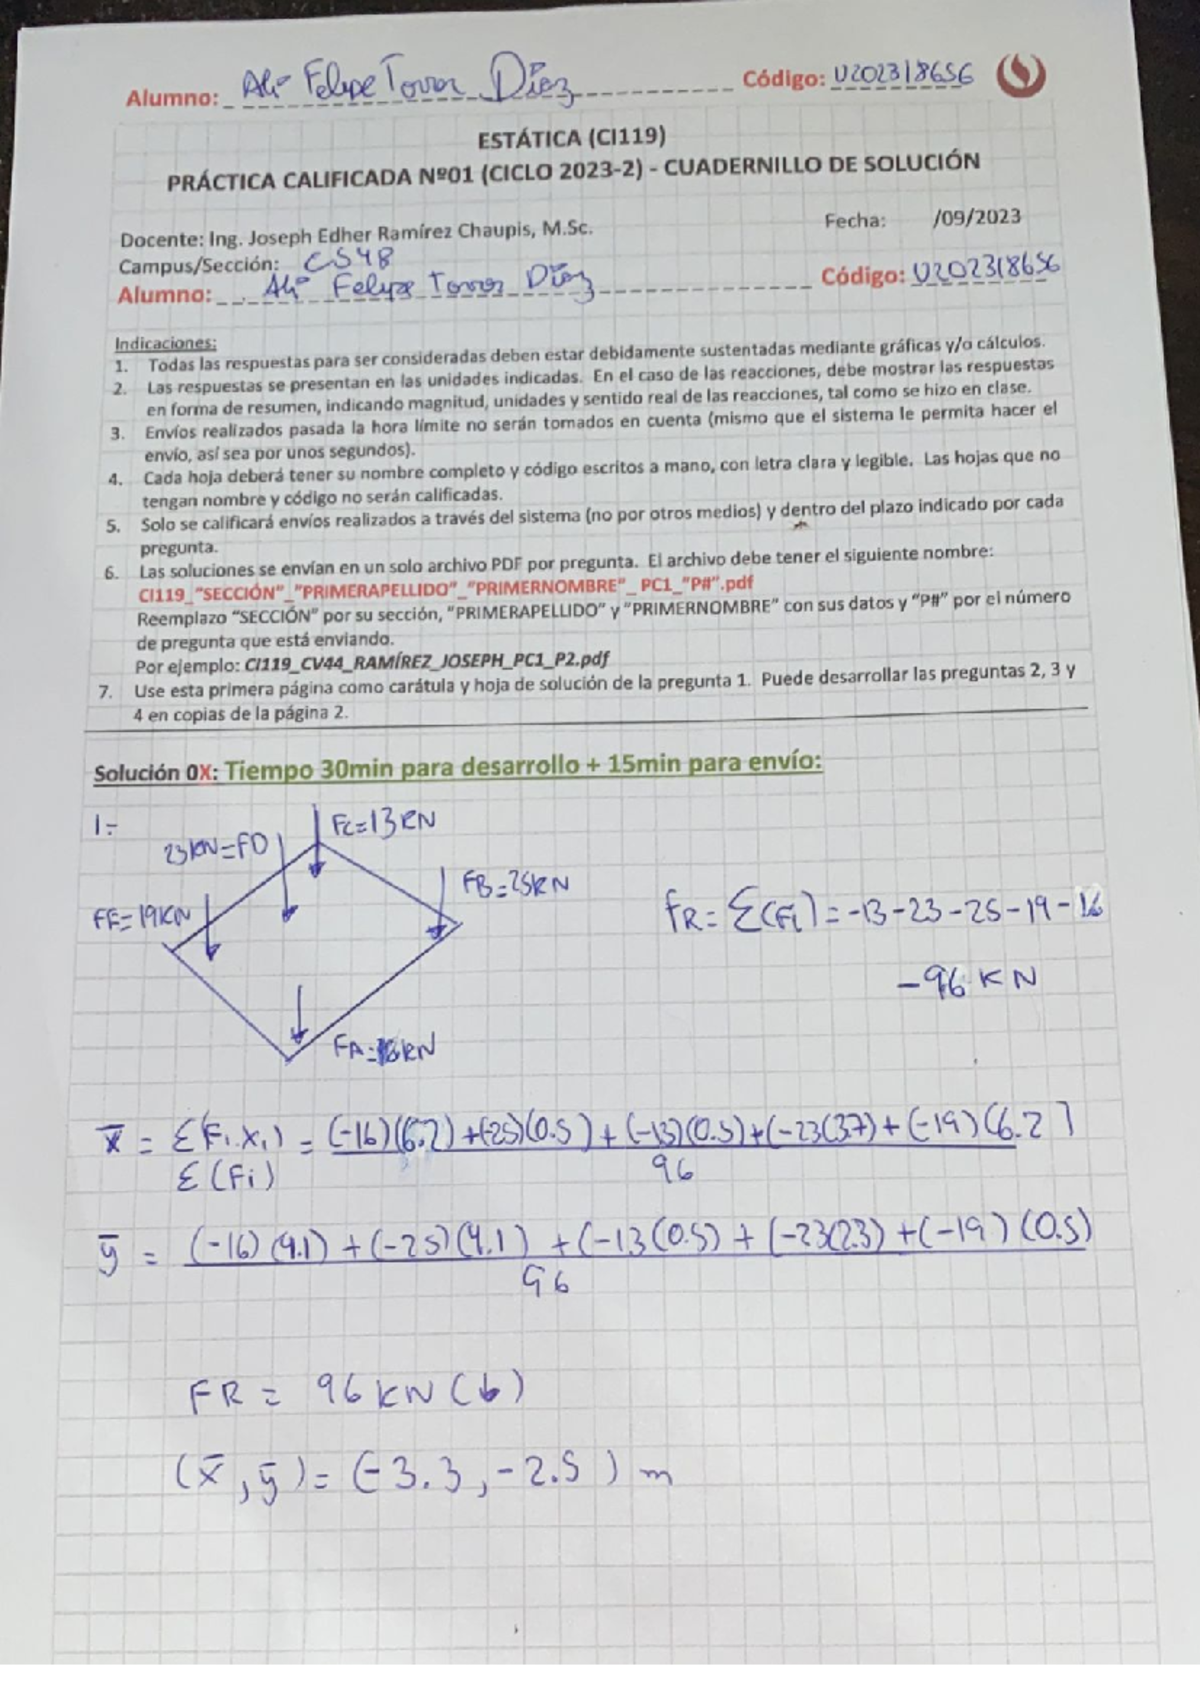 Alumno: Felipe Torres Díaz Código: U202318656
ESTÁTICA (CI119)
PRÁCTICA CALIFICADA Nº01 (CICLO 2023-2) - CUADERNILLO DE SOLUCIÓN
Docente: Ing. Joseph Edher Ramírez Chaupis, M.Sc. Fecha: /09/2023
Campus/Sección: CS48
Alumno: Felipe Torres Díaz Código: U202318656
Indicaciones:
1. Todas las respuestas para ser consideradas deben estar debidamente sustentadas mediante gráficas y/o cálculos.
2. Las respuestas se presentan en las unidades indicadas. En el caso de las reacciones, debe mostrar las respuestas
en forma de resumen, indicando magnitud, unidades y sentido real de las reacciones, tal como se hizo en clase.
3. Envíos realizados pasada la hora límite no serán tomados en cuenta (mismo que el sistema le permita hacer el
envío, así sea por unos segundos).
4. Cada hoja deberá tener su nombre completo y código escritos a mano, con letra clara y legible. Las hojas que no
tengan nombre y código no serán calificadas.
5. Solo se calificará envíos realizados a través del sistema (no por otros medios) y dentro del plazo indicado por cada
pregunta.
6. Las soluciones se envían en un solo archivo PDF por pregunta. El archivo debe tener el siguiente nombre:
CI119_"SECCIÓN"_"PRIMERAPELLIDO"_"PRIMERNOMBRE"_ PC1_"P#".pdf
Reemplazo "SECCIÓN" por su sección, "PRIMERAPELLIDO" y "PRIMERNOMBRE" con sus datos y "P#" por el número
de pregunta que está enviando.
Por ejemplo: CI119_CV44_RAMÍREZ_JOSEPH_PC1_P2.pdf
7. Use esta primera página como carátula y hoja de solución de la pregunta 1. Puede desarrollar las preguntas 2, 3 y
4 en copias de la página 2.
Solución 0X: Tiempo 30min para desarrollo + 15min para envío:
1=
FC=13KN
23KN=FD
FB=25KN
FE=19KN
FA=16KN
FR = Σ(Fi) = -13-23-25-19-16
-96 KN
x̄ = Σ(Fi.Xi) = (-16)(6.2)+(-25)(0.5)+(-13)(0.5)+(-23(3.7)+(-19)(6.2)
Σ(Fi) 96
ȳ = (-16)(4.1)+(-25)(4.1)+(-13(0.5)+(-23(2.3)+(-19)(0.5)
96
FR = 96 KN (↓)
(x̄, ȳ) = (-3.3, -2.5) m